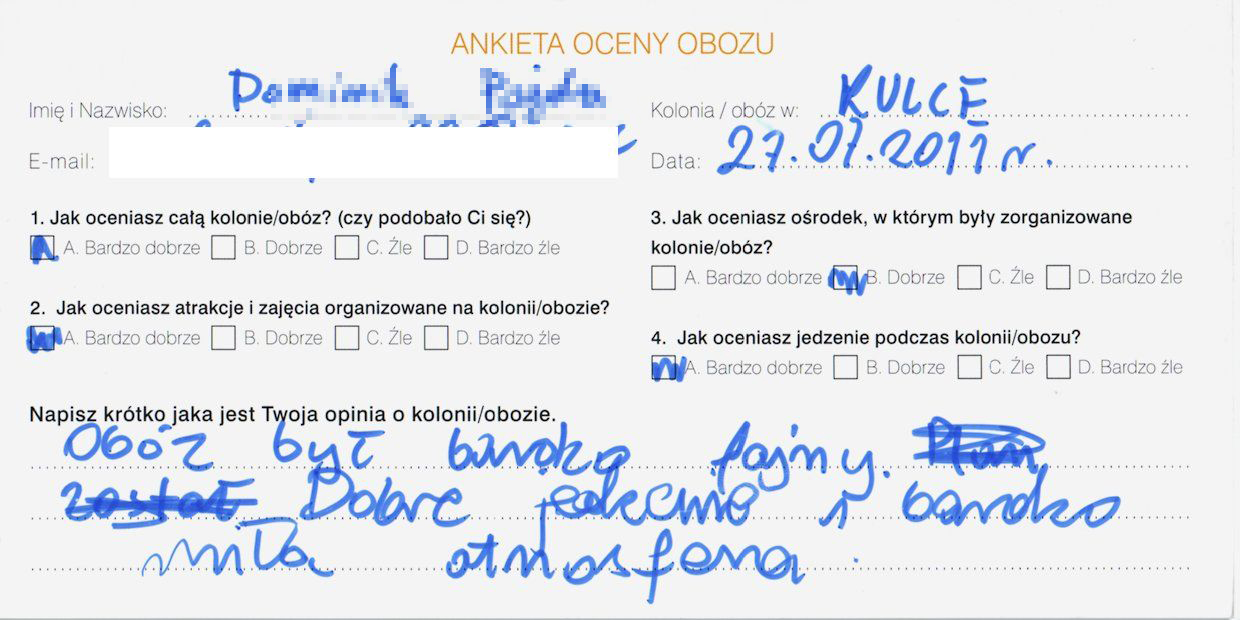 ANKIETA OCENY OBOZU
Imię i Nazwisko:
Kolonia / obóz w: KULCE
E-mail:
Data: 27.07.2011 r.
1. Jak oceniasz całą kolonie/obóz? (czy podobało Ci się?)
A. Bardzo dobrze B. Dobrze C. Źle D. Bardzo źle
2. Jak oceniasz atrakcje i zajęcia organizowane na kolonii/obozie?
A. Bardzo dobrze B. Dobrze C. Źle D. Bardzo źle
3. Jak oceniasz ośrodek, w którym były zorganizowane
kolonie/obóz?
A. Bardzo dobrze B. Dobrze C. Źle D. Bardzo źle
4. Jak oceniasz jedzenie podczas kolonii/obozu?
A. Bardzo dobrze B. Dobrze C. Źle D. Bardzo źle
Napisz krótko jaka jest Twoja opinia o kolonii/obozie.
Obóz był bardzo fajny.
Dobre jedzenie i bardzo
miła atmosfera.